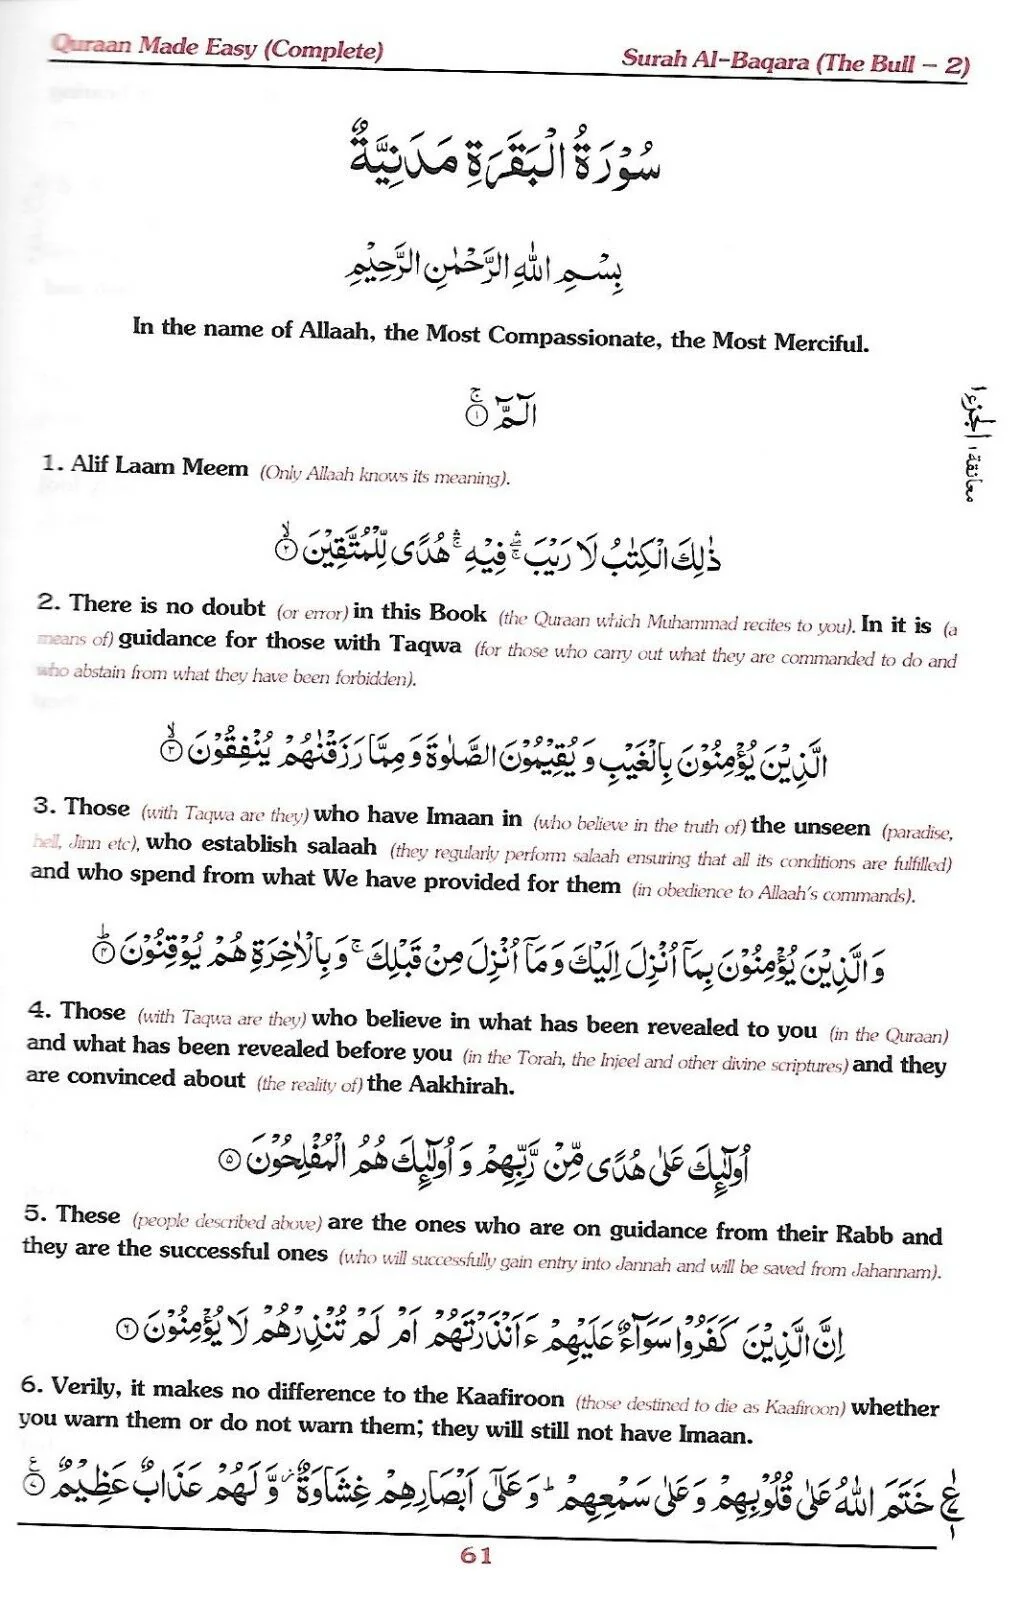 Quraan Made Easy (Complete) Surah Al-Baqara (The Bull – 2)
سُوْرَةُ الْبَقَرَةِ مَدَنِيَّةٌ
بِسْمِ اللهِ الرَّحْمٰنِ الرَّحِيْمِ
In the name of Allaah, the Most Compassionate, the Most Merciful.
الٓمّٓ ۚ ﴿١﴾
معانقة ١ الجزء ١
1. Alif Laam Meem (Only Allaah knows its meaning).
ذٰلِكَ الْكِتٰبُ لَا رَيْبَ ۛۚ فِيْهِ ۛۚ هُدًى لِّلْمُتَّقِيْنَ ۙ ﴿٢﴾
2. There is no doubt (or error) in this Book (the Quraan which Muhammad recites to you). In it is (a
means of) guidance for those with Taqwa (for those who carry out what they are commanded to do and
who abstain from what they have been forbidden).
الَّذِيْنَ يُؤْمِنُوْنَ بِالْغَيْبِ وَ يُقِيْمُوْنَ الصَّلٰوةَ وَ مِمَّا رَزَقْنٰهُمْ يُنْفِقُوْنَ ۙ ﴿٣﴾
3. Those (with Taqwa are they) who have Imaan in (who believe in the truth of) the unseen (paradise,
hell, Jinn etc), who establish salaah (they regularly perform salaah ensuring that all its conditions are fulfilled)
and who spend from what We have provided for them (in obedience to Allaah's commands).
وَ الَّذِيْنَ يُؤْمِنُوْنَ بِمَآ اُنْزِلَ اِلَيْكَ وَ مَآ اُنْزِلَ مِنْ قَبْلِكَ ۚ وَ بِالْاٰخِرَةِ هُمْ يُوْقِنُوْنَ ؕ ﴿٤﴾
4. Those (with Taqwa are they) who believe in what has been revealed to you (in the Quraan)
and what has been revealed before you (in the Torah, the Injeel and other divine scriptures) and they
are convinced about (the reality of) the Aakhirah.
اُولٰٓئِكَ عَلٰى هُدًى مِّنْ رَّبِّهِمْ وَ اُولٰٓئِكَ هُمُ الْمُفْلِحُوْنَ ﴿٥﴾
5. These (people described above) are the ones who are on guidance from their Rabb and
they are the successful ones (who will successfully gain entry into Jannah and will be saved from Jahannam).
اِنَّ الَّذِيْنَ كَفَرُوْا سَوَآءٌ عَلَيْهِمْ ءَاَنْذَرْتَهُمْ اَمْ لَمْ تُنْذِرْهُمْ لَا يُؤْمِنُوْنَ ﴿٦﴾
6. Verily, it makes no difference to the Kaafiroon (those destined to die as Kaafiroon) whether
you warn them or do not warn them; they will still not have Imaan.
خَتَمَ اللهُ عَلٰى قُلُوْبِهِمْ وَ عَلٰى سَمْعِهِمْ ؕ وَ عَلٰٓى اَبْصَارِهِمْ غِشَاوَةٌ ۫ وَّ لَهُمْ عَذَابٌ عَظِيْمٌ ﴿٧﴾ ع ١
61